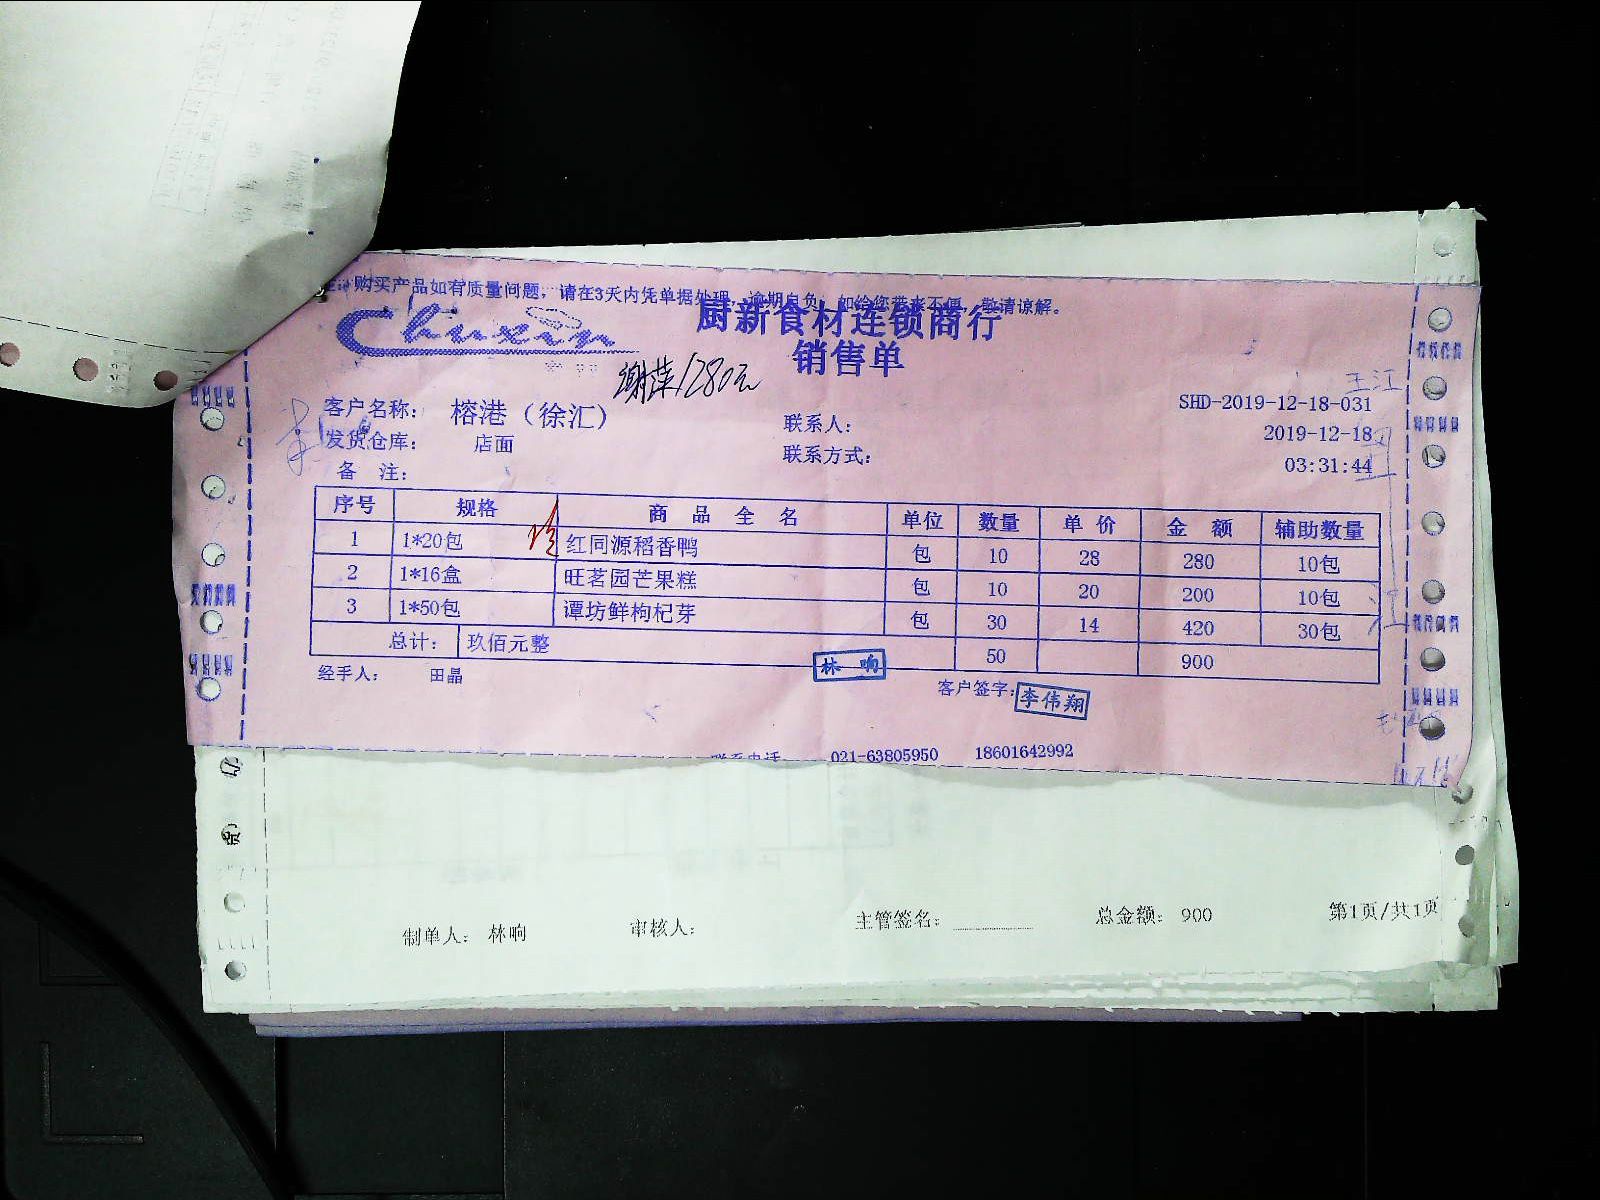 购买产品如有质量问题，请在3天内凭单据处理，逾期自负，如给您带来不便，敬请谅解。
Chuxin
厨新食材连锁商行
销售单
谢萍1280元
王江
客户名称： 榕港（徐汇） 联系人： SHD-2019-12-18-031
发货仓库： 店面 联系方式： 2019-12-18
备 注： 03:31:44
序号 规格 商品全名 单位 数量 单价 金额 辅助数量
1 1*20包 红同源稻香鸭 包 10 28 280 10包
2 1*16盒 旺茗园芒果糕 包 10 20 200 10包
3 1*50包 谭坊鲜枸杞芽 包 30 14 420 30包
总计： 玖佰元整 50 900
经手人： 田晶 林响 客户签字： 李伟翔
联系电话 021-63805950 18601642992
制单人： 林响 审核人： 主管签名： 总金额： 900 第1页/共1页